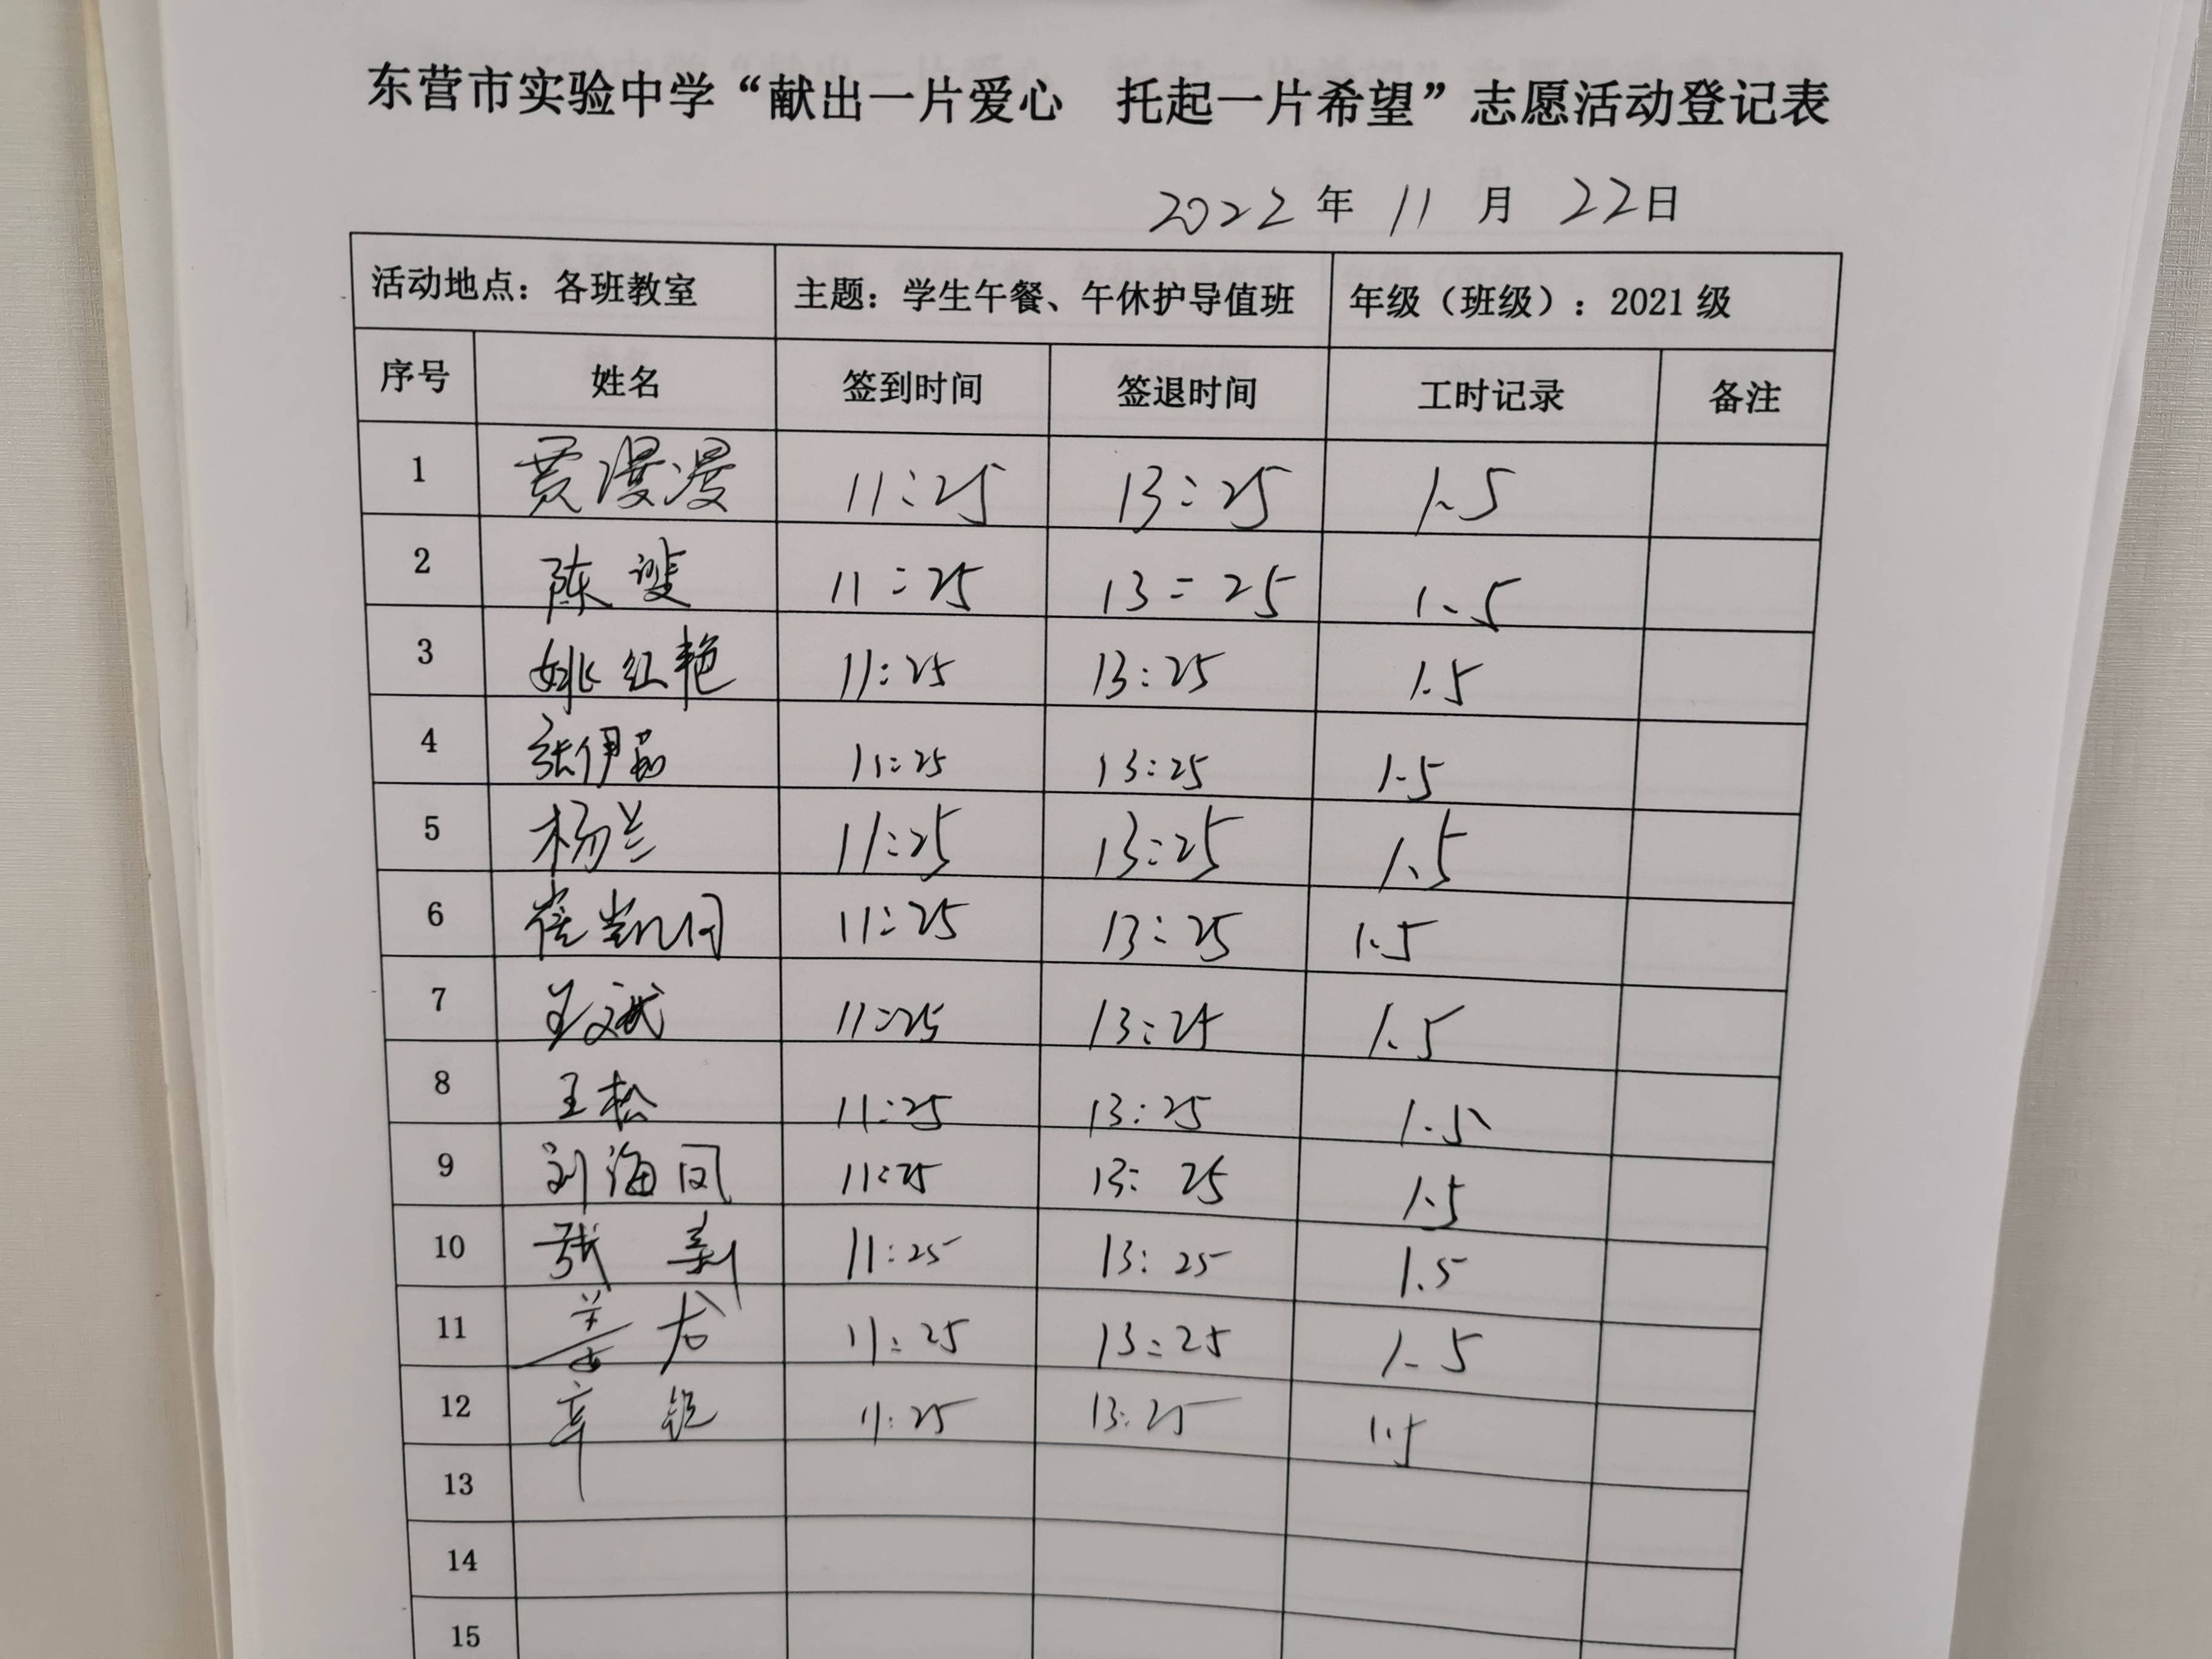 东营市实验中学“献出一片爱心 托起一片希望”志愿活动登记表
2022年 11月 22日
活动地点：各班教室 主题：学生午餐、午休护导值班 年级（班级）：2021级
序号 姓名 签到时间 签退时间 工时记录 备注
1 黄漫漫 11:25 13:25 1.5
2 陈斐 11:25 13:25 1.5
3 姚红艳 11:25 13:25 1.5
4 张伊茹 11:25 13:25 1.5
5 杨兰 11:25 13:25 1.5
6 崔凯同 11:25 13:25 1.5
7 王斌 11:25 13:25 1.5
8 王松 11:25 13:25 1.5
9 刘海凤 11:25 13:25 1.5
10 张 11:25 13:25 1.5
11 姜龙 11:25 13:25 1.5
12 辛锐 11:25 13:25 1.5
13
14
15